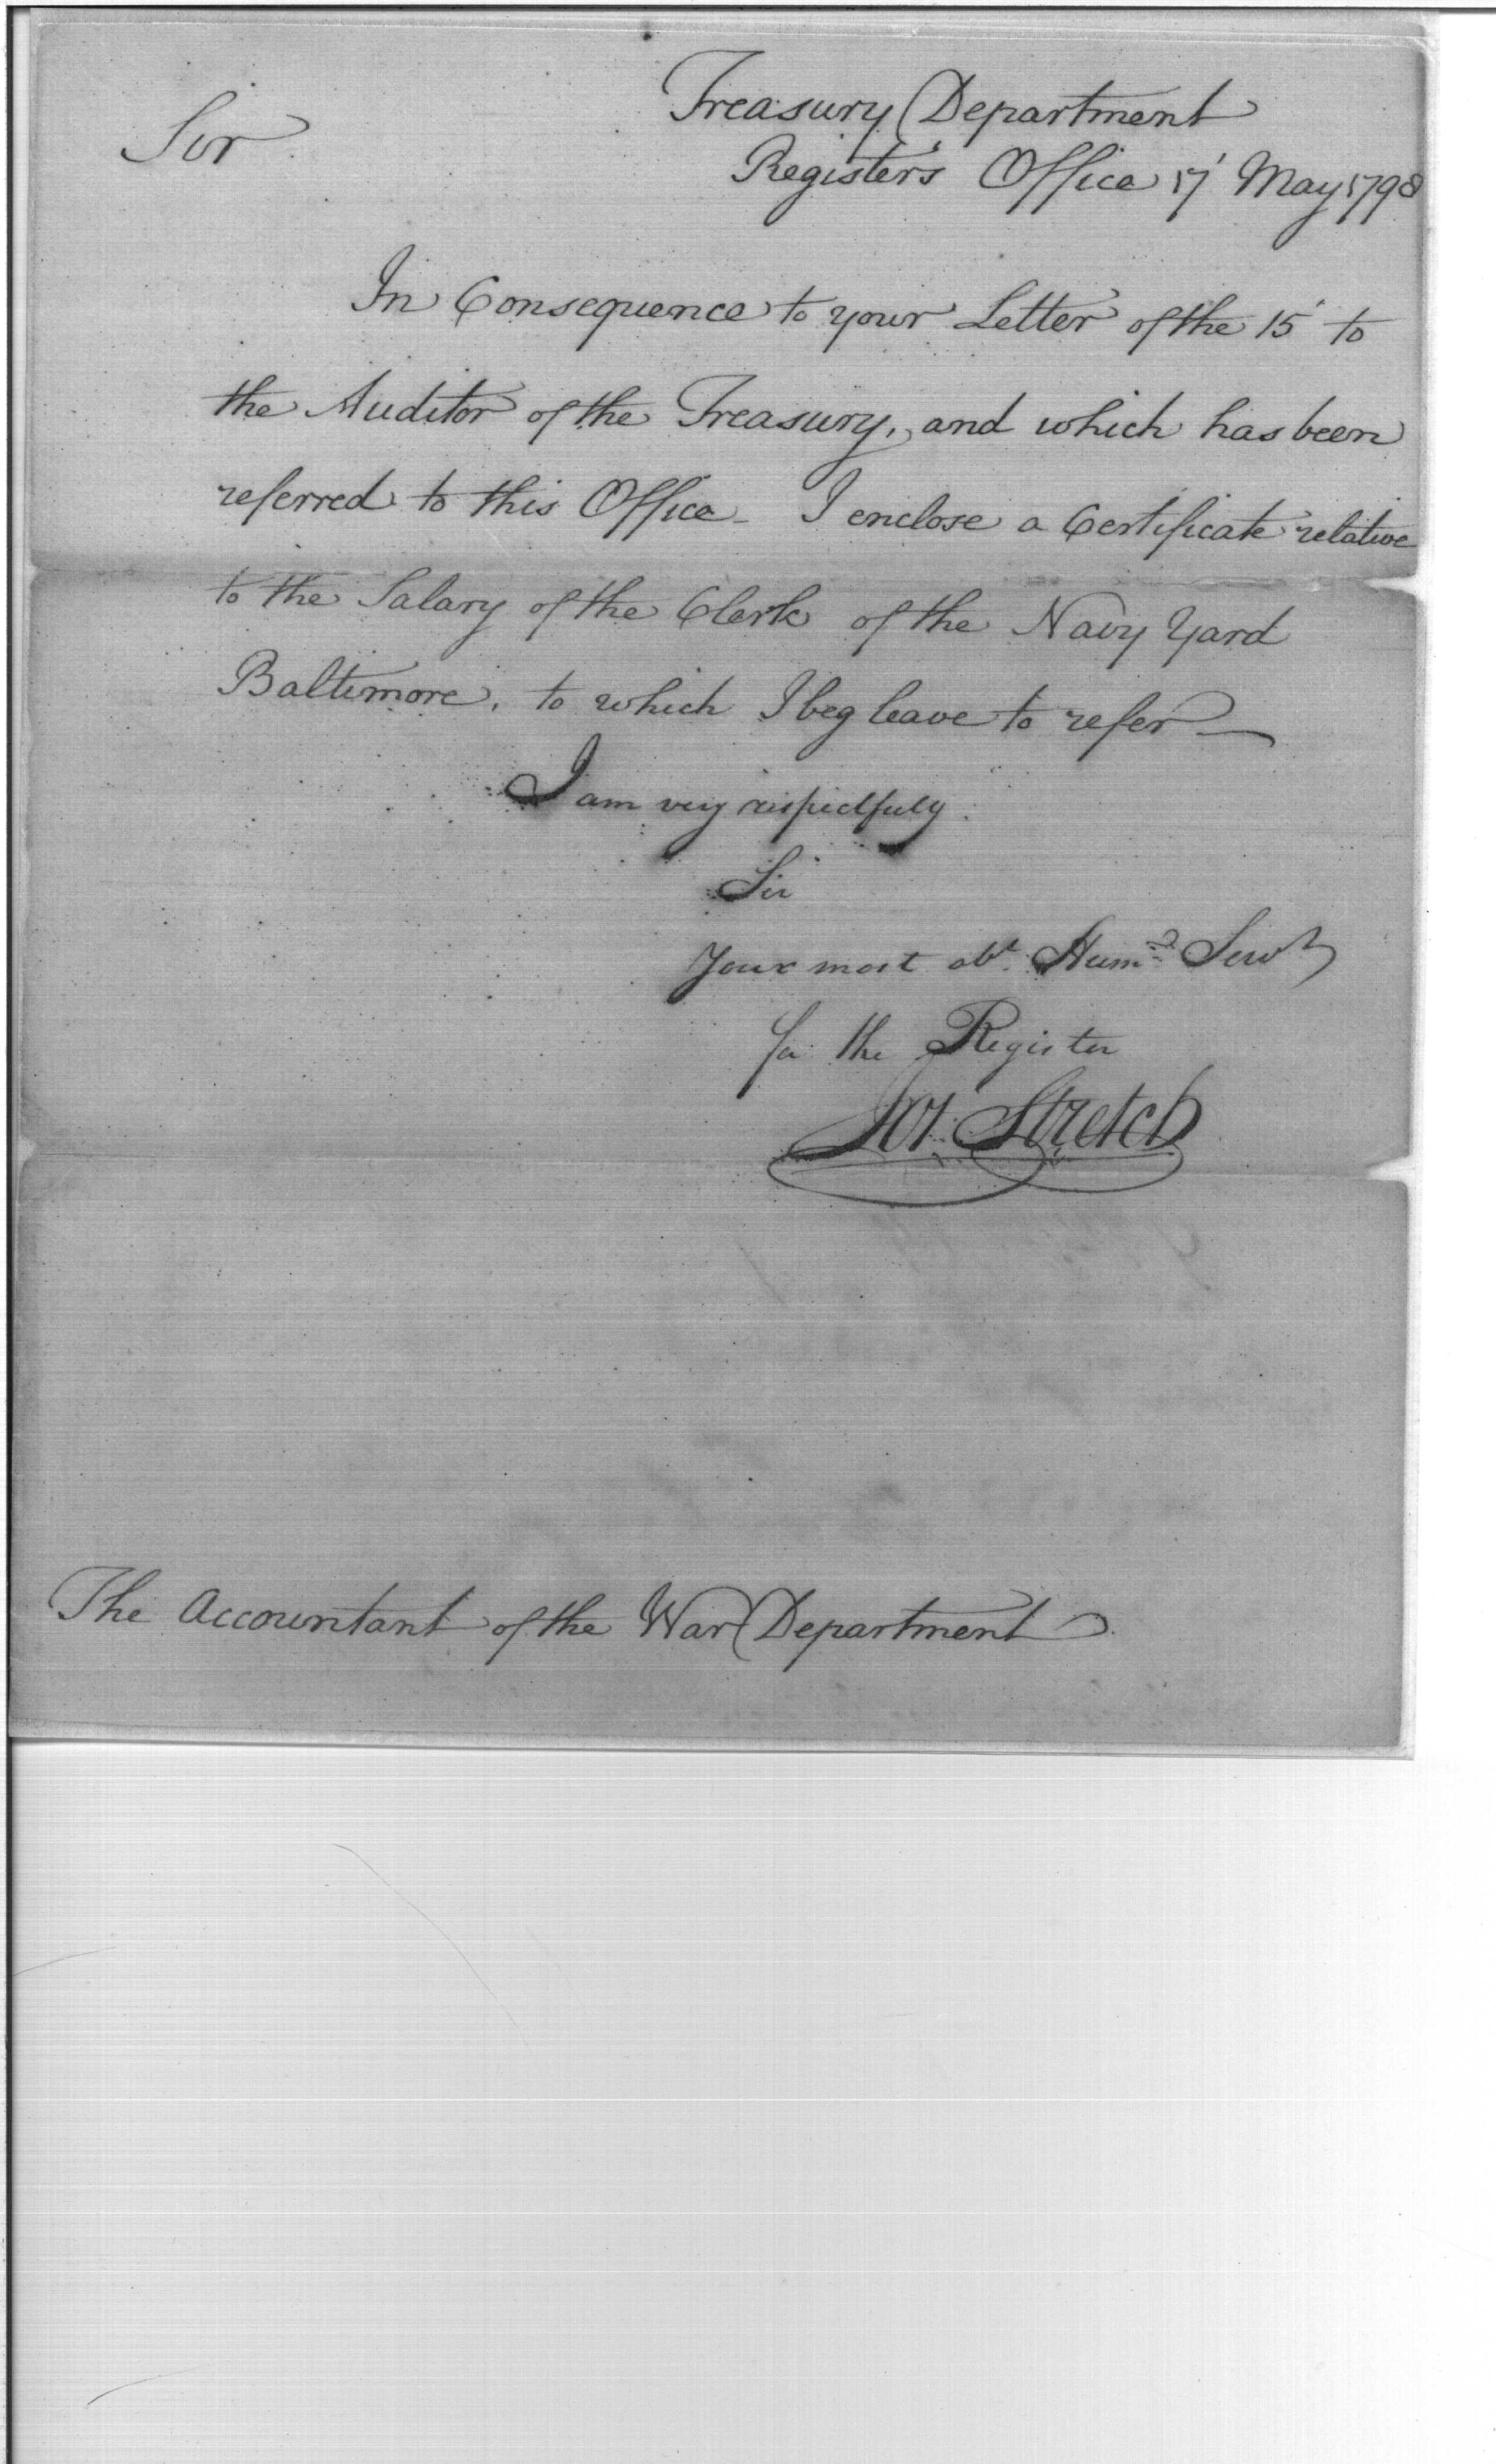 Treasury Department
Sir
Register's Office 17 May 1798
In Consequence to your Letter of the 15 to
the Auditor of the Treasury, and which has been
referred to this Office - I enclose a Certificate relative
to the Salary of the Clerk of the Navy Yard
Baltimore, to which I beg leave to refer —
I am very respectfuly
Sir
Your most obt. Hume Servt
for the Register
Jos Stretch
The Accountant of the War Department